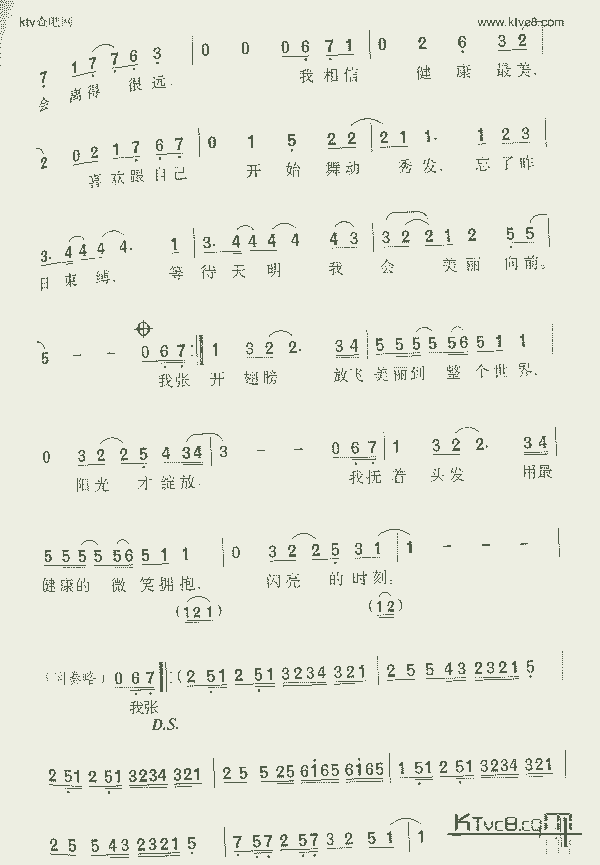 ktv吧网 www.ktvc8.com
7 1 7 7 6 3 | 0 0 0 6 7 1 | 0 2 6 3 2 |
会 离得 很 远. 我 相信 健 康 最 美.
2 0 2 1 7 6 7 | 0 1 5 2 2 | 2 1 1. 1 2 3 |
喜 欢 跟 自 己 开 始 舞动 秀 发. 忘 了 昨
3. 4 4 4 4. 1 | 3. 4 4 4 4 4 3 | 3 2 2 1 2 5 5 |
日 束 缚. 等 待 天 明 我 会 美 丽 向 前。
5 - - 0 6 7 :‖ 1 3 2 2. 3 4 | 5 5 5 5 5 5 6 5 1 1 |
我张 开 翅膀 放飞 美丽到 整 个世 界.
0 3 2 2 5 4 3 4 | 3 - - 0 6 7 | 1 3 2 2. 3 4 |
阳光 才 绽放. 我抚 着 头发 用最
5 5 5 5 5 6 5 1 1 | 0 3 2 2 5 3 1 | 1 - - - |
健康的 微 笑拥抱. 闪亮 的 时刻.
(1 2 1) (1 2)
(间奏略) 0 6 7 ‖: (2 51 2 51 3234 321 | 2 5 5 43 2321 5 |
我张
D.S.
2 51 2 51 3234 321 | 2 5 5 25 6165 6165 | 1 51 2 51 3234 321 |
2 5 5 43 2321 5 | 7 57 2 57 3 2 51 | 1
KTvc8.co